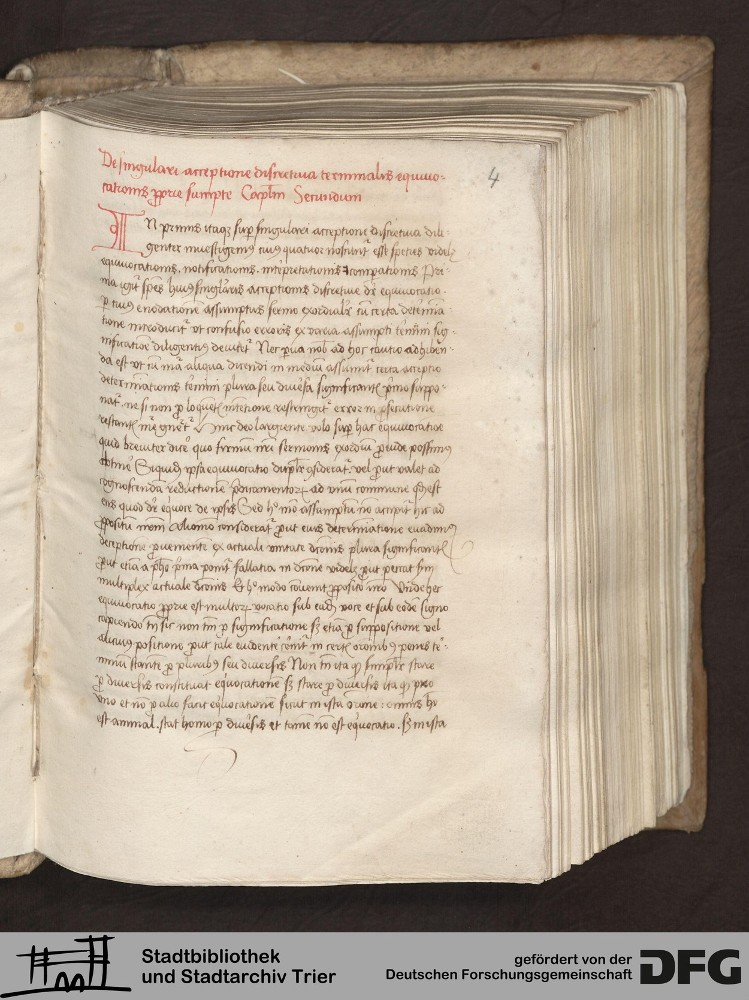 De singulari acceptione discretiua terminalis equiuo-
cationis proprie sumpte Caplm Secundum
4
IN primis itaque super singulari acceptione discretiua dili-
genter inuestigemus cuius quatuor noscuntur esse species videlz
equiuocationis. notificationis. interpretationis et comparationis Pri-
ma igitur spes huius singularis acceptionis discretiue dr equiuocatio.
per cuius enodationem assumptus sermo exordialr cu certa determina
tione introducitur vt confusio erroris ex varia assumpti termini sig-
nificatione diligentius deuitetur Nec parua nobis ad hoc cautio adhiben-
da est vt cu materia aliqua dicendi in medium assumitur certa acceptio
determinationis termini plura seu diuersa significantis primo suppo-
natur. ne si non pro loquentis intentione restringitur error in prosecutione
restantis materie generetur Hinc deo largiente volo super hac equiuocatione
quid breuiter dicere quo firmum nostri sermonis exordium proinde possimus
obtinere Siquidem ipsa equiuocatio dupliciter consideratur. vel prout valet ad
cognoscendam reductionem predicamentorum ad vnum commune quod est
ens quod dr equiuoce de ipsis Sed hoc modo assumptum non accipitur hic ad
propositum nostrum Aliomodo consideratur prout eius determinatione euadimus
deceptionem prouenientem ex actuali vnitate dictionis plura significantis
prout etiam a pho prima ponitur fallatia in dictione videlz prout peccat secundum
multiplex actuale dictionis Et hoc modo conuenit proposito nostro Vnde hec
equiuocatio proprie est multorum vocatio sub eadem voce et sub eodem signo
capiendo tamen sic non tantum pro significatione sed etiam pro suppositione vel
alicuius positione prout tale euidenter cernitur in certis orationibus penes ter-
minum stantem pro pluribus seu diuersis Non tamen ita quod simpliciter stare
pro diuersis constituat equiuocationem sed stare pro diuersis ita quod pro
vno et non pro alio facit equiuocationem sicut in ista oratione: omnis ho
est animal. stat homo pro diuersis et tamen non est equiuocatio. sed in ista
Stadtbibliothek
und Stadtarchiv Trier
gefördert von der
Deutschen Forschungsgemeinschaft
DFG